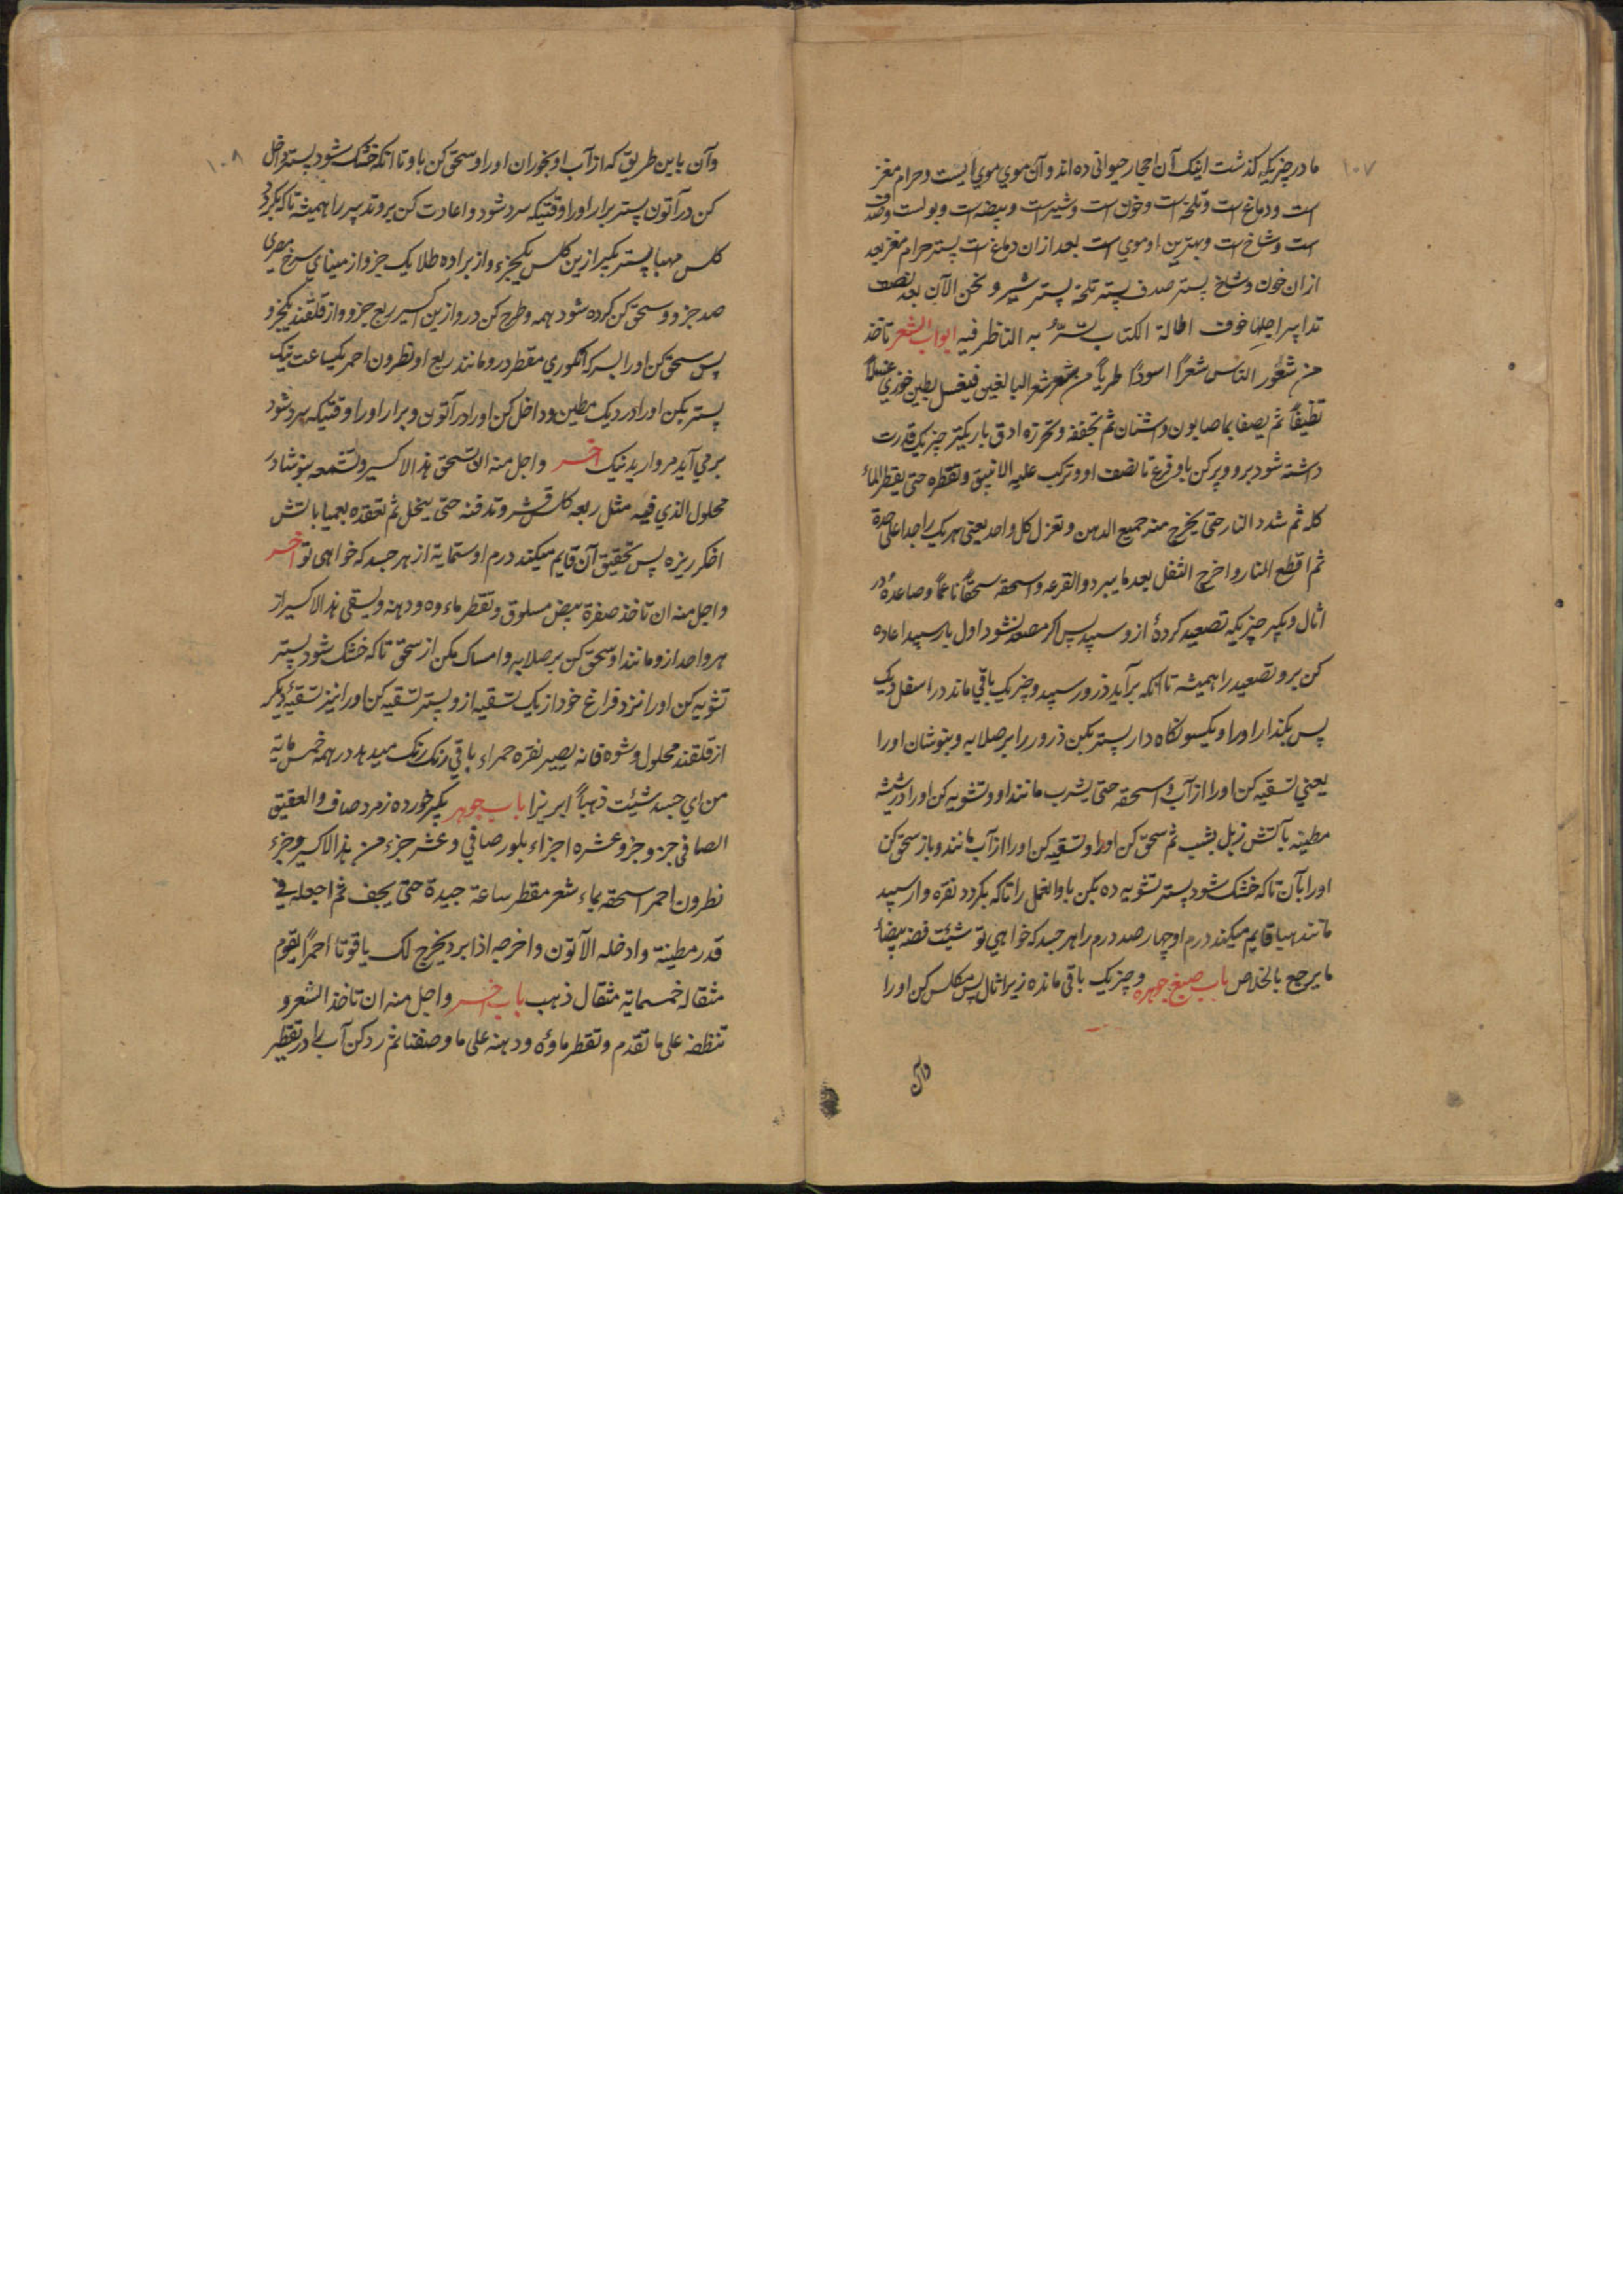 ۱۰۷
ما در چیزیکه گذشت اینک آن احجار حیوانی ده اند و آن موي موي ایست و حرام مغز
است و دماغ است و تلخه است و خون است و شیر است و بیضه است و بولست و صدف
است و شاخ است و بهترین او موي است بعد ازان دماغ است پستر حرام مغز بعد
ازان خون و شاخ پستر صدف پستر تلخه پستر شیر و نحن الآن بعد نصف
تدابیر اجلها خوف اطالة الکتاب به الناظر فیه ابواب الشعر تاخذ
من شعور الناس شعرًا اسودًا طریاً من شعر البالغین فیغسل بطین خوزي غسلاً
نظیفاً ثم یصفا بماصابون و اشنان ثم تجففه و تحرزه ادق باریکتر چیزیکه قدرت
داشته شود برو و پر کن باو قرع تا نصف او و ترکب علیه الانبیق و تقطره حتی یقطر الماء
کله ثم شدد النار حتی یخرج منه جمیع الدهن و تعزل کل واحد یعنی هریک را جدا علی حدة
ثم اقطع النار و اخرج الثفل بعد ما یبرد و القرعه و اسحقه سحقاً ناعماً و صاعده در
اثال و بگیر چیزیکه تصعید کرده از و سپید پس اگر مصعد نشود اول بار سپید اعاده
کن برو تصعید را همیشه تا انکه برآید ذرور سپید و چیزیکه باقي ماند در اسفل دیک
پس بگذار اورا و یکسو نگاه دار پستر بکن ذرور را بر صلایه و بنوشان اورا
یعني تسقیه کن اورا از آب و اسحقه حتی یشرب مانند او و تشویه کن اورا در شیشه
مطینه بآتش زبل بشب ثم سحق کن اورا و تسقیه کن اورا از آب مانند و باز سحق کن
اورا بآن تا که خشک شود پستر تشویه ده بکن باو العمل را تا که بگردد نقره وار سپید
مانند مها قایم میکند درم او چهار صد درم را هر جسد که خواهي تو شیئت فضه بیضاء
ما یرجع بالخلاص باب صبغ جوهره و چیزیکه باقی مانده زیر اثال پس مکلس کن اورا
۱۰۸
وآن باین طریق که از آب او بخوران اورا و سحق کن باو تا انکه خشک شود پستر داخل
کن در آتون پستر برار اورا وقتیکه سرد شود و اعادت کن برو تدبیر را همیشه تا که بگردد
کلس مهبا پستر بگیر ازین کلس یکجزء و از براده طلا یک جزو از میناي سرخ مصري
صد جزو و سحق کن کرده شود همه و طرح کن درو ازین اکسیر ربع جزو و از قلقند یکجزو
پس سحق کن اورا بسرکه انگوري مقطر درو مانند ربع او نطرون احمر یکساعت نیک
پستر بکن اورا در دیک مطین و داخل کن اورا در آتون و برار اورا وقتیکه سرد شود
برمي آید مروارید نیک آخر و اجل منه ان تسحق هذا الاکسیر و تشمعه بنوشادر
محلول الذي فیه مثل ربعه کلس قشر و تدفنه حتی ینحل ثم تعقده بعمیا باتش
اخگر ریزه پس تحقیق آن قایم میکند درم او ستمایة از هر جسد که خواهی تو آخر
و اجل منه ان تاخذ صفرة بیض مسلوق و تقطر ماءه و دهنه و یسقی هذا الاکسیر از
هر واحد ازو مانند او سحق کن بر صلایه و امساک مکن از سحق تا که خشک شود پستر
تشویه کن اورا نزد فراغ خود از یک تسقیه ازو پستر تسقیه کن اورا نیز تسقیهٔ دیگر
از قلقند محلول و شوه فانه یصیر نقره حمراء باقي رنگ رنگ میدهد درهمه خمس مایة
من اي جسد شیئت ذهباً ابریزا باب جوهر بگیر خورده زمرد صاف و العقیق
الصافی جزو جزو عشره اجزاء بلور صافي و عشر جزء من هذا الاکسیر و جزء
نطرون احمر اسحقه بماء شعر مقطر ساعة جیدة حتی یجف ثم اجعله في
قدر مطینة و ادخله الآتون و اخرجه اذا برد یخرج لک یاقوتا احمرًا یقوم
مثقاله خمسمایة مثقال ذهب باب آخر و اجل منه ان تاخذ الشعر و
تنظفه علی ما تقدم و تقطر ماؤه و دهنه علی ما وصفنا ثم رد کن آب را در تقطیر